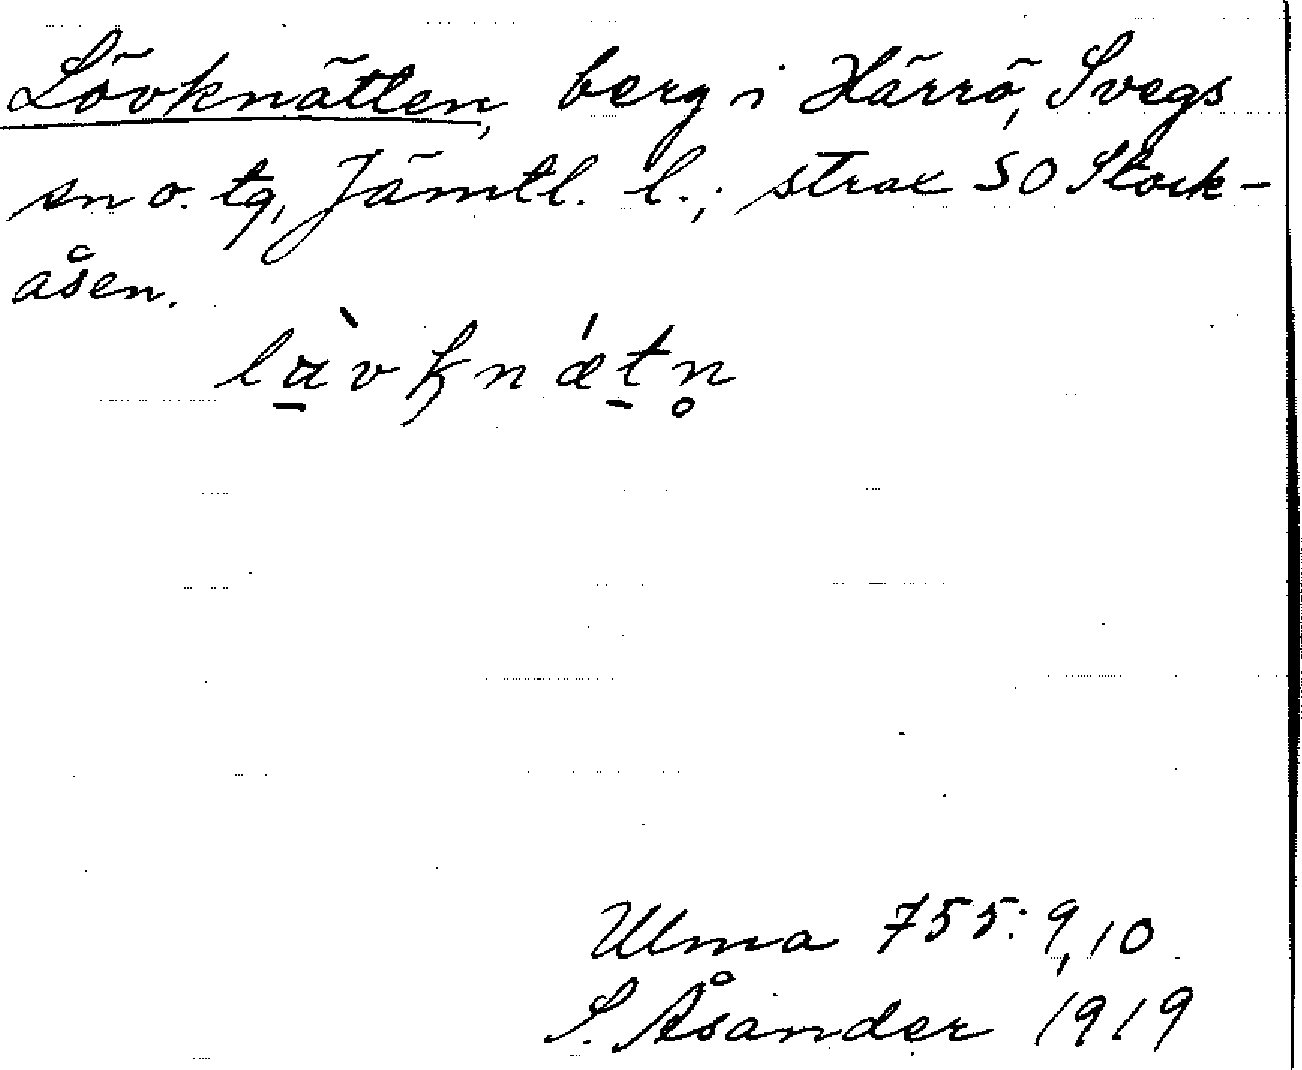 Lövknätten, berg i Härrö, Svegs
sn o. tg, Jämtl. l.; strax SO Stork-
åsen.
Ulma 755: 9,10
S. Åsander 1919